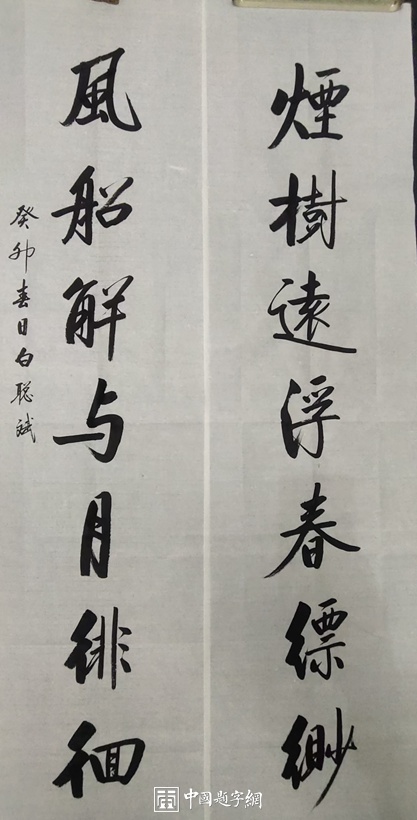 煙樹遠浮春縹緲
風船解与月徘徊
癸卯春日白聪斌
中國题字網